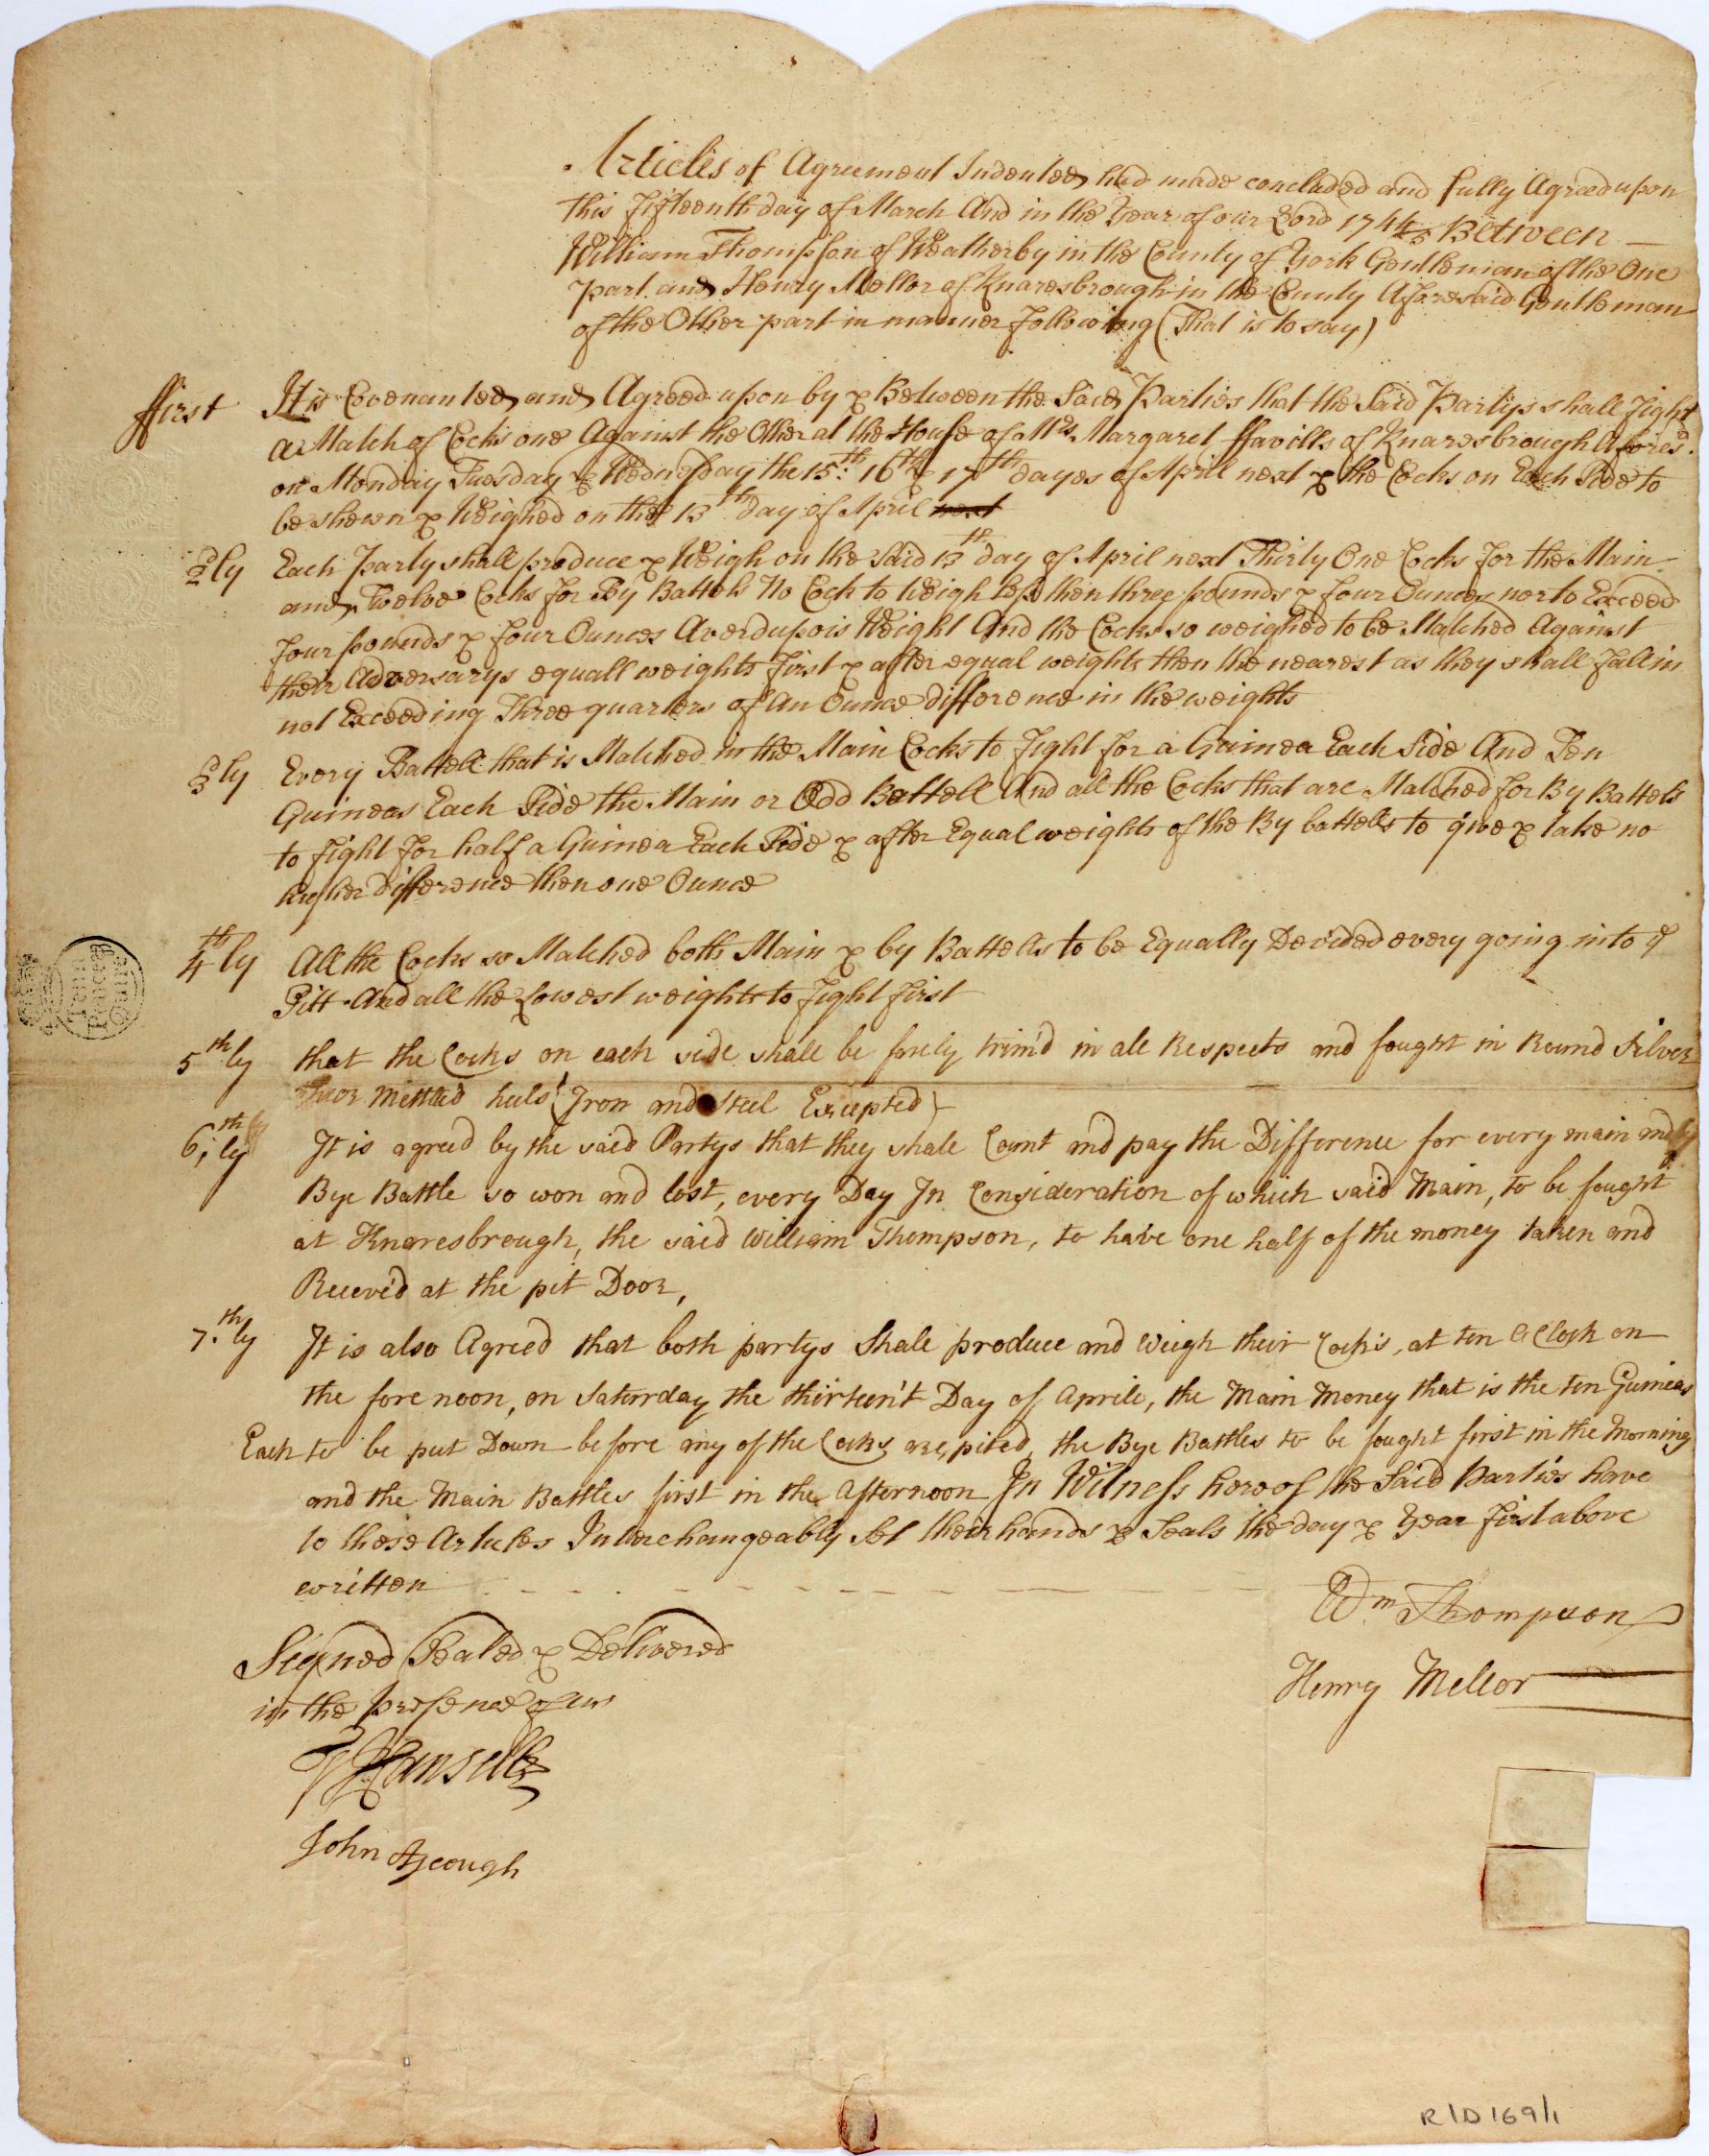 Articles of Agreement Indented had made concluded and fully Agreed upon
this fifteenth day of March And in the Year of our Lord 1744/5 Between
William Thompson of Weatherby in the County of York Gentleman of the One
part and Henry Mellor of Knaresbrough in the County Aforesaid Gentleman
of the Other part in manner following (That is to say)
ffirst It is Covenanted and Agreed upon by & Between the Said Parties that the Said Partys shall fight
a Match of Cocks one Against the Other at the House of Mrs Margaret ffavills of Knaresbrough Afores.d
on Monday Tuesday & Wednesday the 15th. 16th & 17th dayes of April next & the Cocks on Each Side to
be shewn & Weighed on the 13th day of April next
2dly Each Party shall produce & Weigh on the Said 13th day of April next Thirty One Cocks for the Main
and Twelve Cocks for By Battels No Cock to Weigh less then three pounds & four Ounces nor to Exceed
four pounds & four Ounces Averdupois Weight And the Cocks so weighed to be Matched Against
their Adversarys equall weights first & after equal weights then the nearest as they shall fall in
not Exceeding Three quarters of An Ounce difference in the weights
3dly Every Battell that is Matched in the Main Cocks to fight for a Guinea Each Side And Ten
Guineas Each Side the Main or Odd Battell And all the Cocks that are Matched for By Battels
to fight for half a Guinea Each Side & after Equal weights of the By battells to give & take no
higher difference then one Ounce
4thly All the Cocks so Matched both Main & by Battells to be Equally Devided every going into ye
Pitt And all the Lowest weights to fight first
5thly that the Cocks on each side shall be farely trim'd in all Respects and fought in Round Silver
Mettled heels (Iron and Steel Excepted)
6thly It is agreed by the said Partys that they shall Count and pay the Difference for every main and
Bye Battle so won and lost, every Day In Consideration of which said Main, to be fought
at Knaresbrough, the said William Thompson, to have one half of the money taken and
Receved at the pit Door,
7.thly It is also Agreed that both partys Shall produce and Weigh their Cocks, at ten a Clock on
the fore noon, on Saturday the thirteen't Day of Aprile, the Main Money that is the ten Guineas
Each to be put Down before any of the Cocks are pited, the Bye Battles to be fought first in the Morning
and the Main Battles first in the Afternoon In Witness hereof the Said Parties have
to these Articles Interchangeably Set their hands & Seals the day & Year first above
written
Wm Thompson
Signed Sealed & Delivered
Henry Mellor
in the presence of us
John Ayscough
R/D 169/1